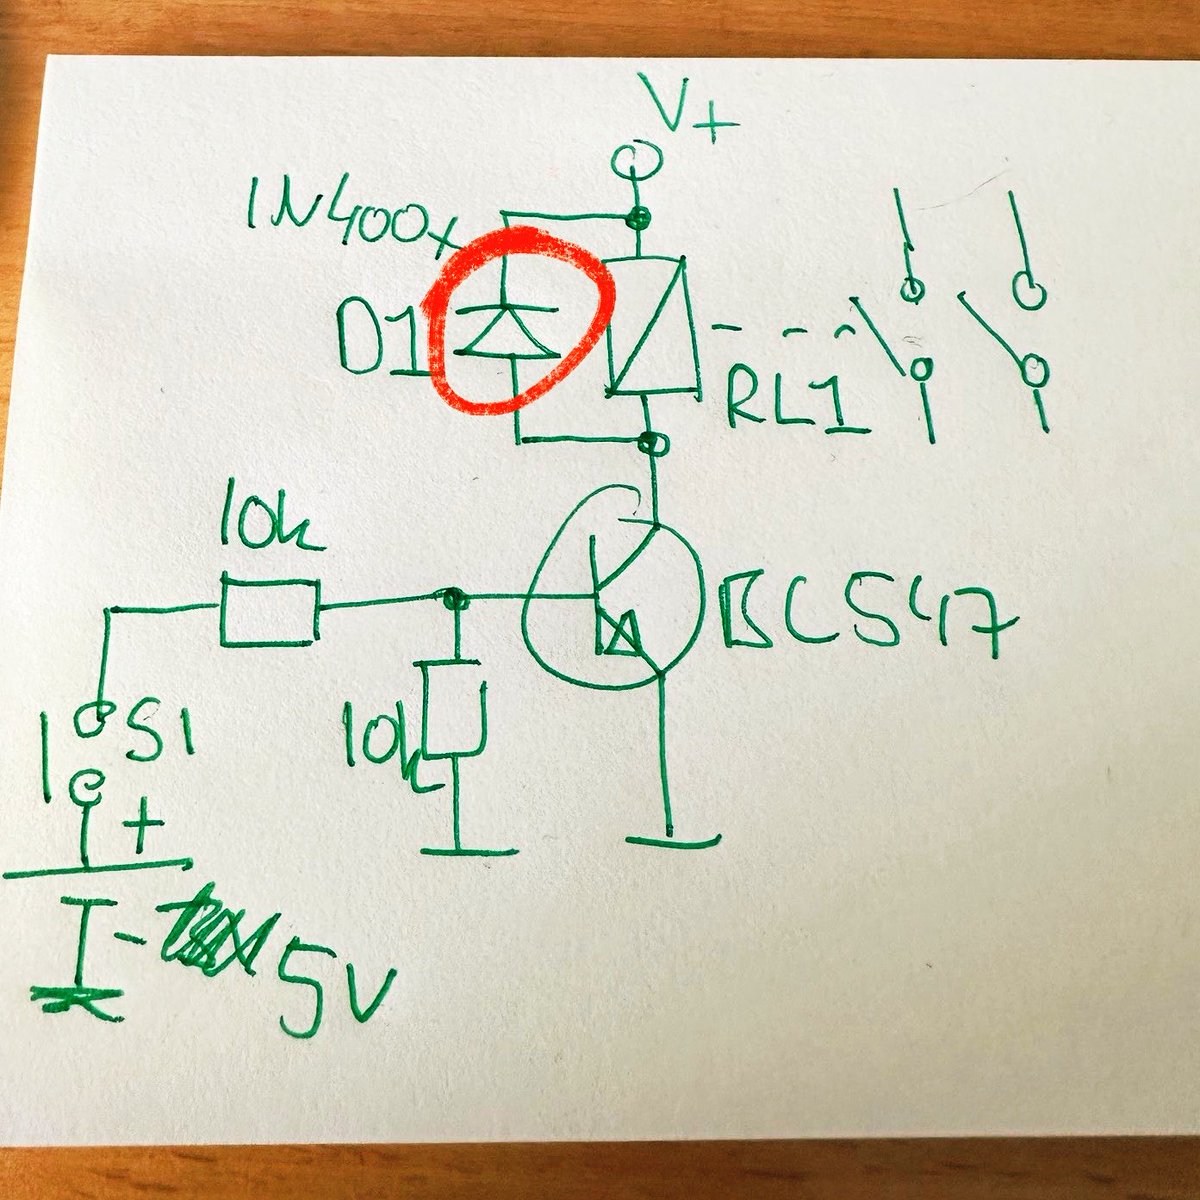 V+
1N400x
D1
RL1
10k
BC547
S1
10k
+
-
5V